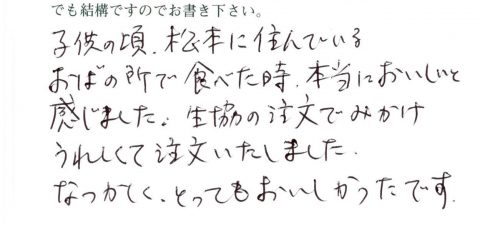 でも結構ですのでお書き下さい。
子供の頃、松本に住んでいる
おばの所で食べた時、本当においしいと
感じました。生協の注文でみかけ
うれしくて注文いたしました.
なつかしく、とってもおいしかったです.